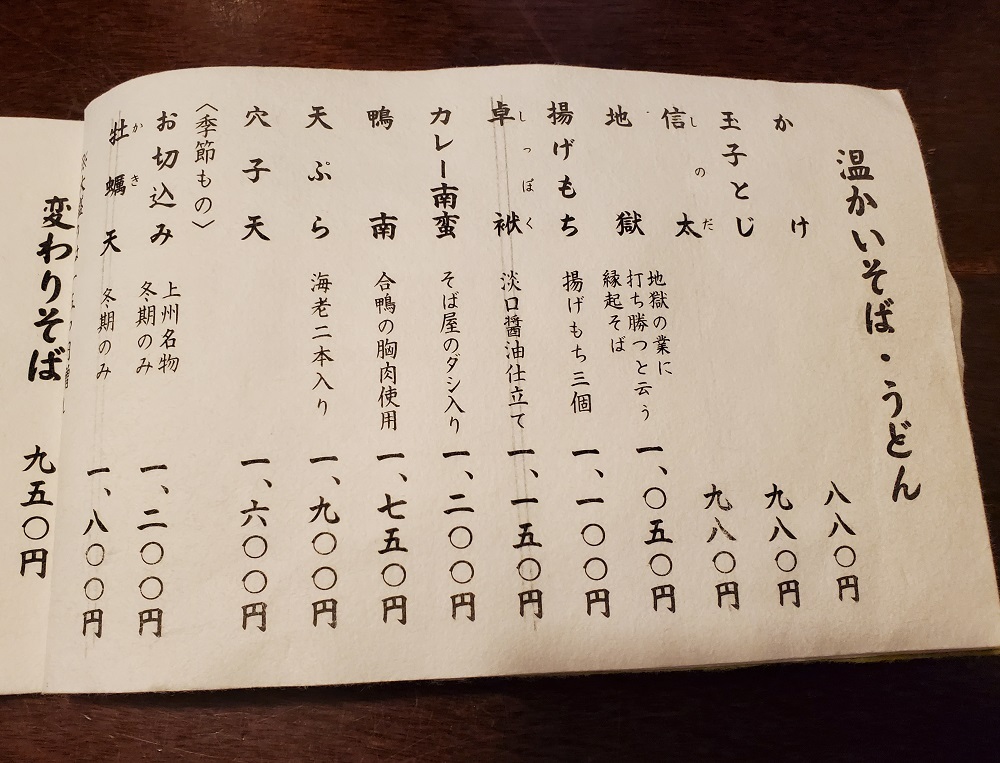 温かいそば・うどん
かけ 八八〇円
玉子とじ 九八〇円
信太 しのだ 九八〇円
地獄 地獄の業に
打ち勝つと云う
縁起そば 一、〇五〇円
揚げもち 揚げもち三個 一、一〇〇円
卓袱 しっぽく 淡口醤油仕立て 一、一五〇円
カレー南蛮 そば屋のダシ入り 一、二〇〇円
鴨南 合鴨の胸肉使用 一、七五〇円
天ぷら 海老二本入り 一、九〇〇円
穴子天 一、六〇〇円
〈季節もの〉
お切込み 上州名物
冬期のみ 一、二〇〇円
牡蠣天 かき 冬期のみ 一、八〇〇円
変わりそば 九五〇円